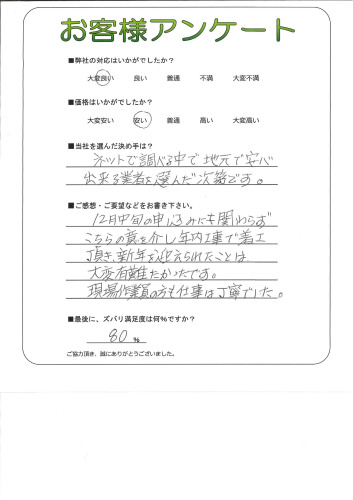 お客様アンケート
■弊社の対応はいかがでしたか？
大変良い　良い　普通　不満　大変不満
■価格はいかがでしたか？
大変安い　安い　普通　高い　大変高い
■当社を選んだ決め手は？
ネットで調べる中で地元で安心
出来る業者を選んだ次第です。
■ご感想・ご要望などをお書き下さい。
12月中旬の申し込みにも関わらず
こちらの意を介し年内工事で着工
頂き、新年を迎えられたことは
大変有難たかったです。
現場作業員の方も仕事は丁寧でした。
■最後に、ズバリ満足度は何％ですか？
80 ％
ご協力頂き、誠にありがとうございました。